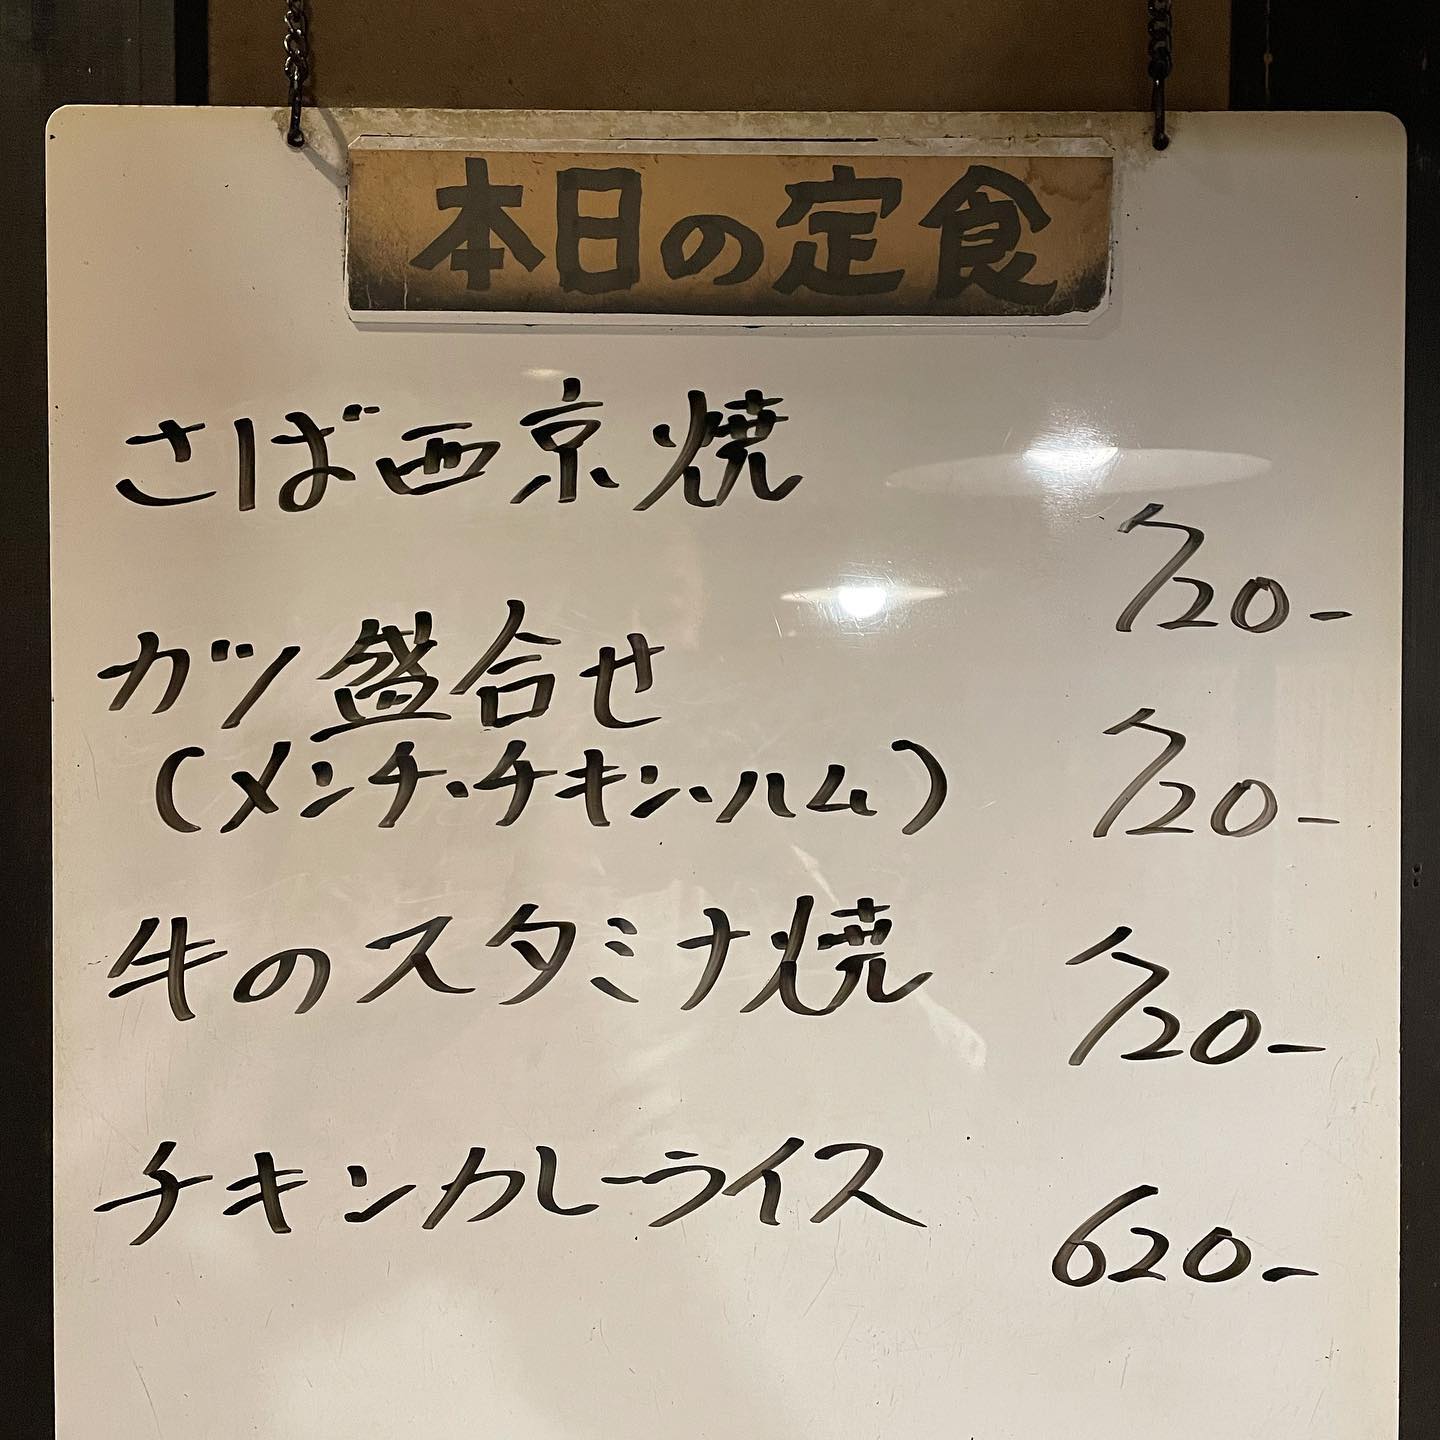 本日の定食
さば西京焼
720-
ガツ盛合せ
(メンチ・チキン・ハム)
720-
牛のスタミナ焼
720-
チキンカレーライス
620-